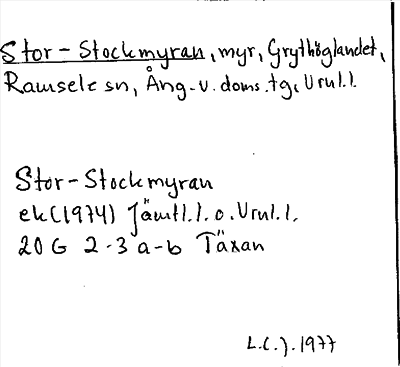 Stor-Stockmyran, myr, Grythöglandet,
Ramsele sn, Ång.v.doms.tg, Urnl.l.
Stor-Stockmyran
ek(1974) Jämtl.l.o.Vrnl.l.
20 G 2-3 a-b Täxan
L.C.J. 1977